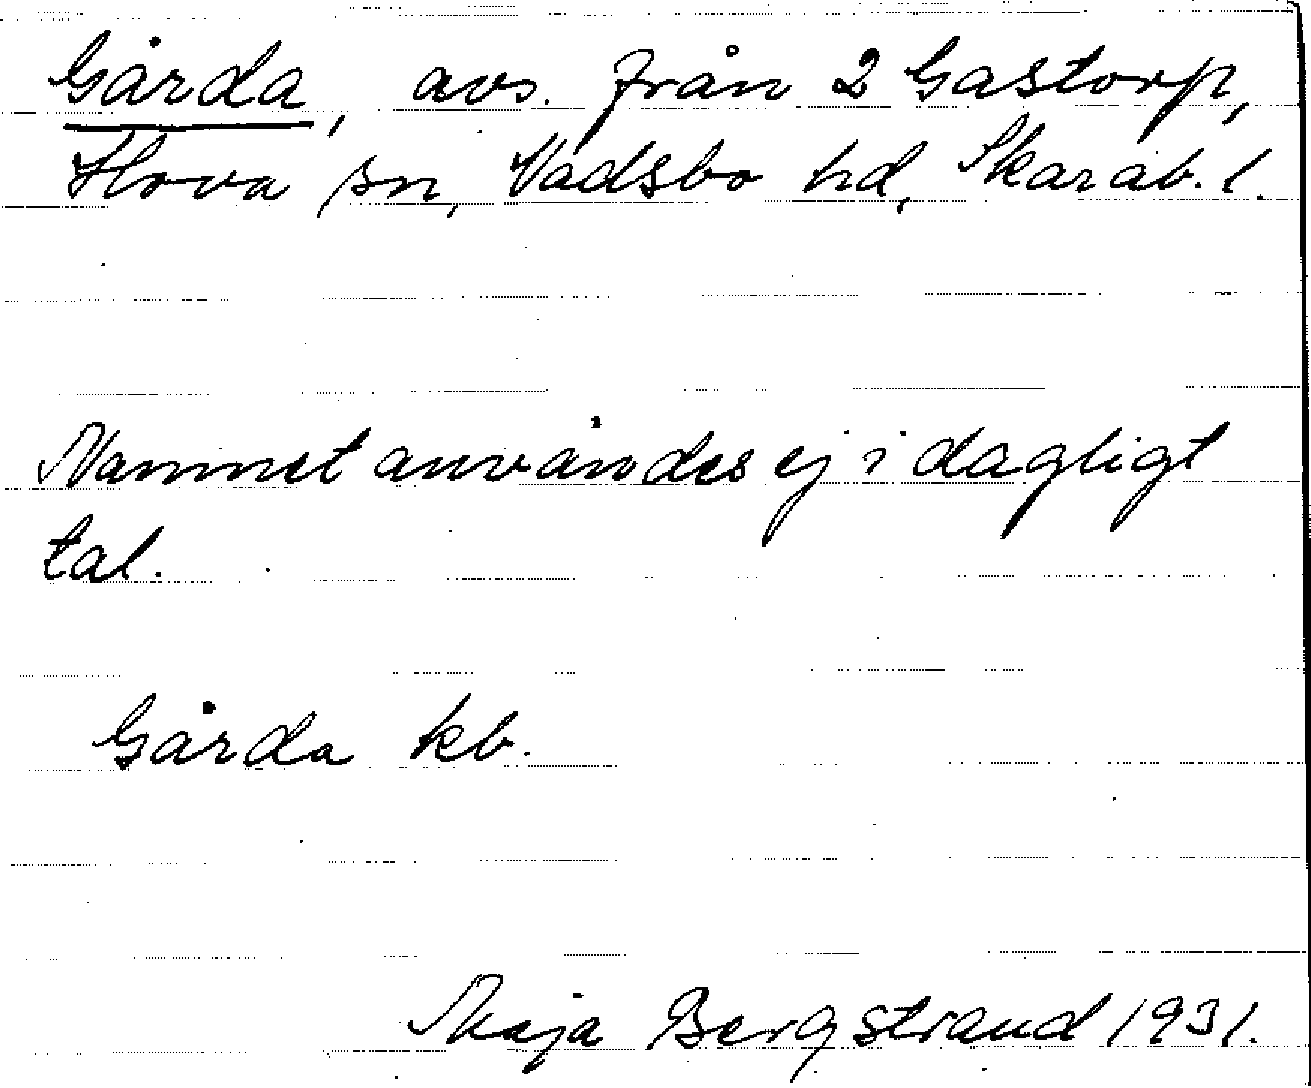 Gårda, avs. från 2 Gastorp,
Hova sn, Vadsbo hd, Skarab. l.
Namnet användes ej i dagligt
tal.
Gårda kb.
Maja Bergstrand 1931.